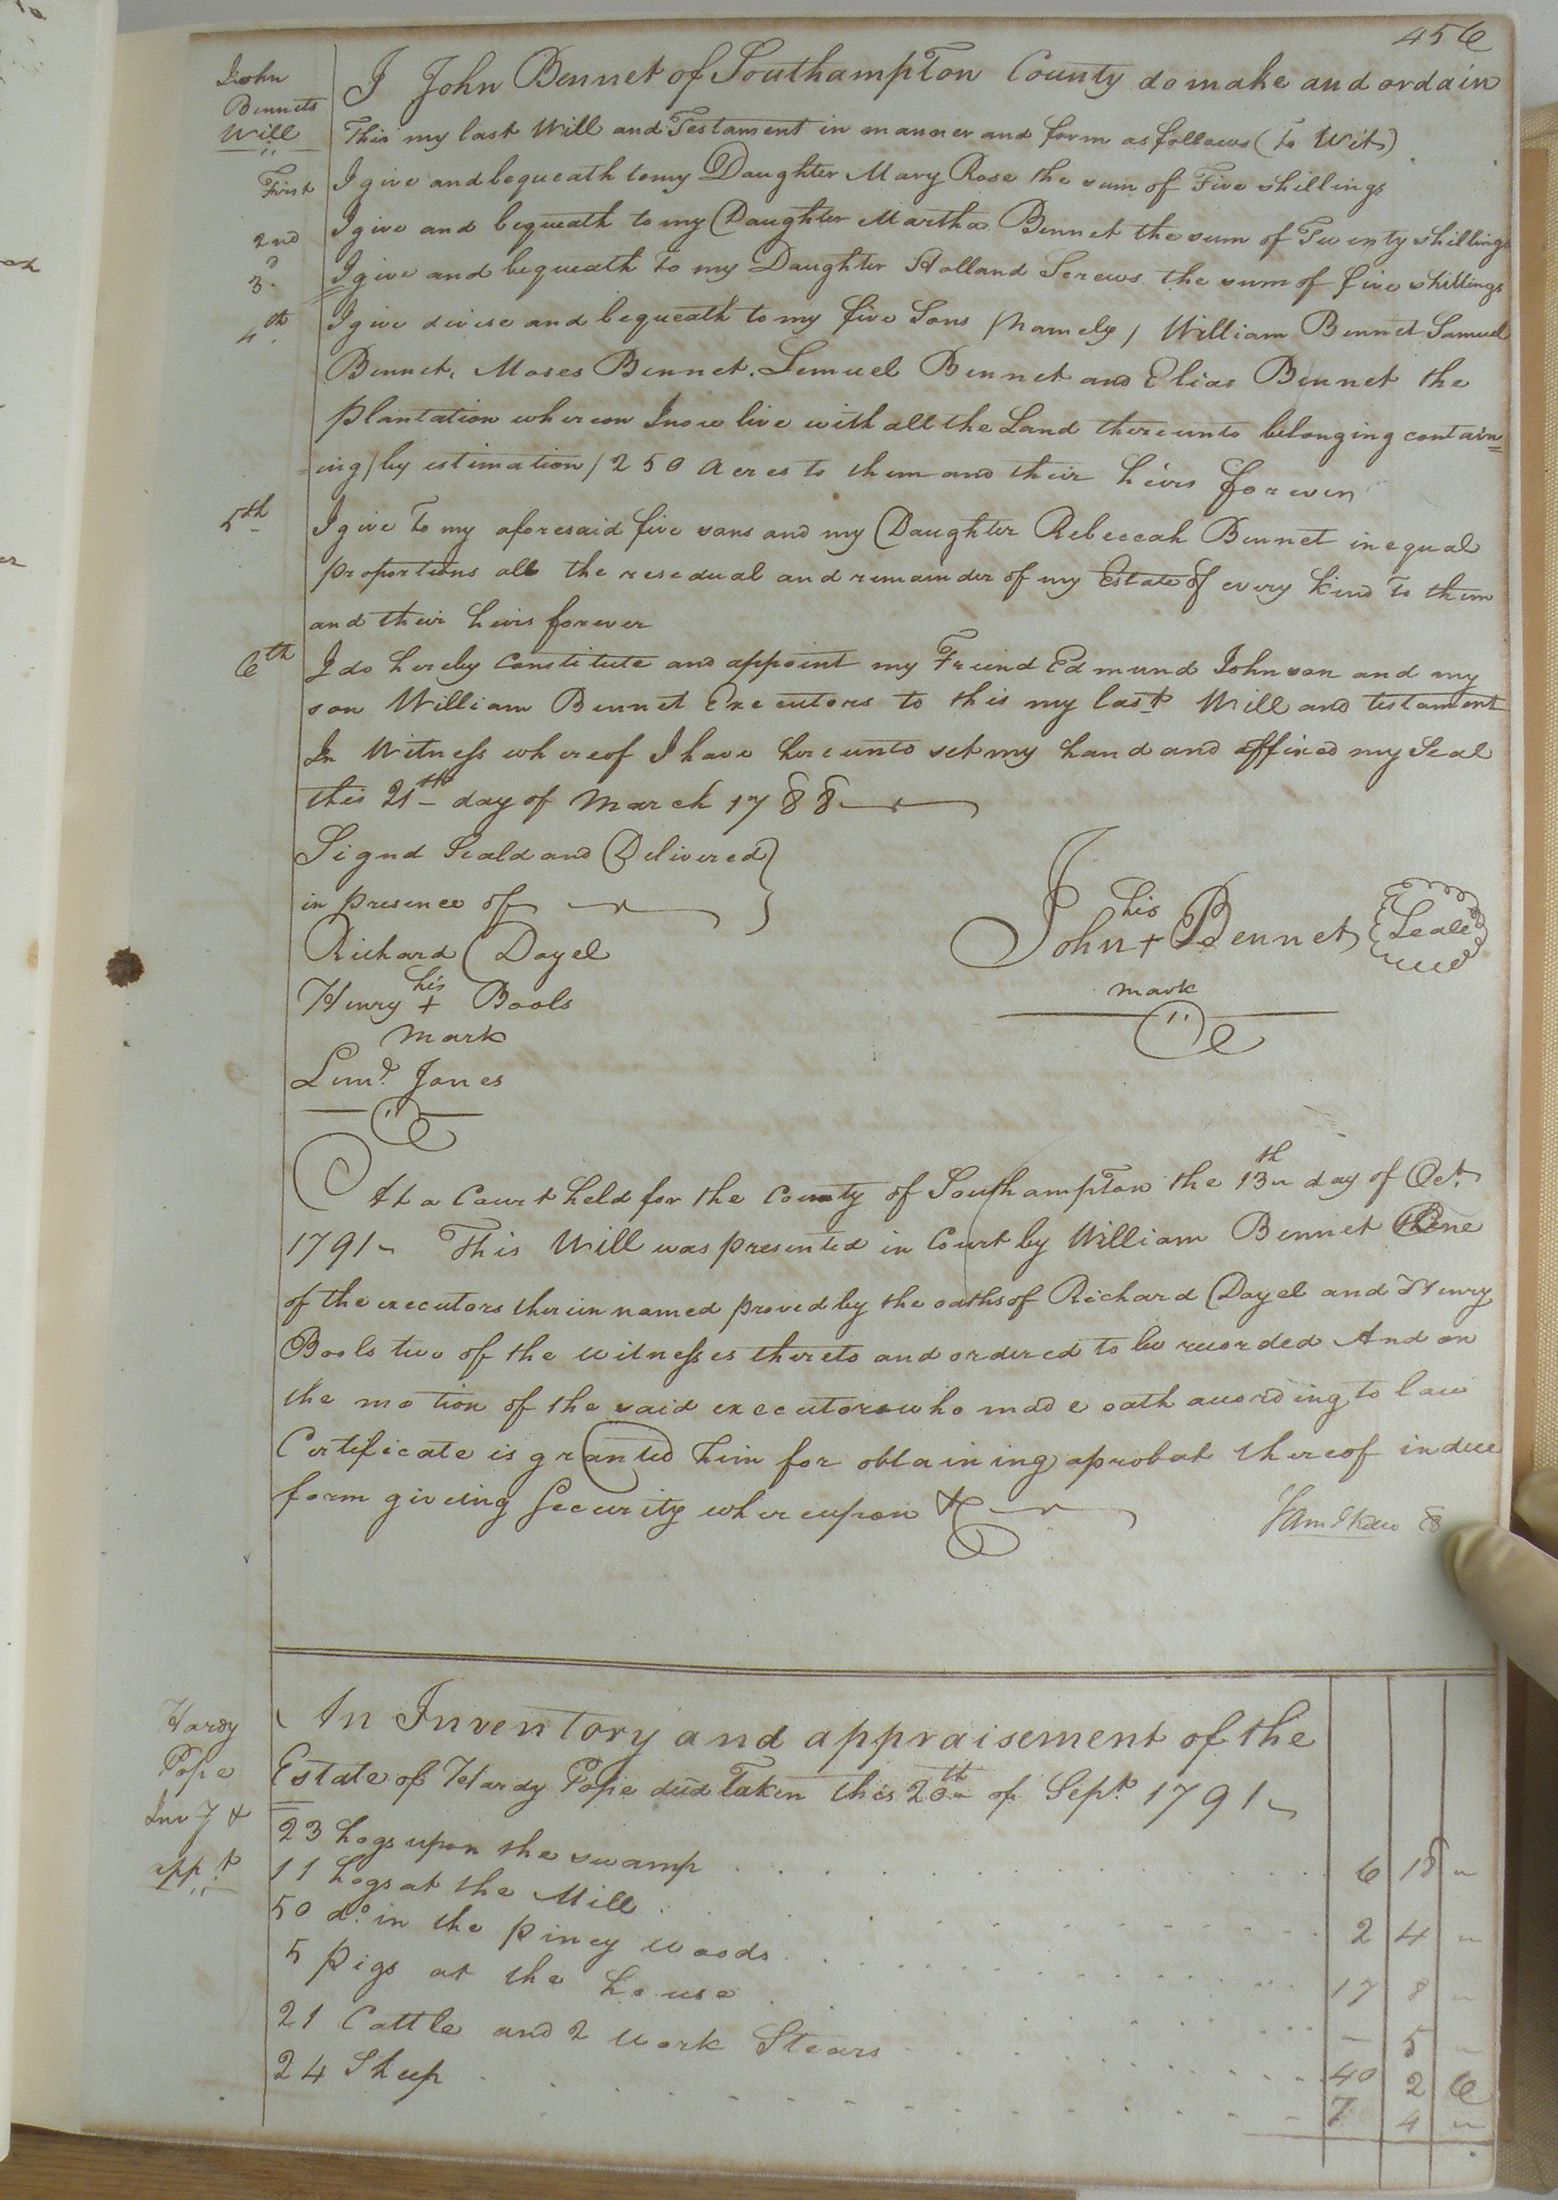 456
John
Bennets
Will
I John Bennet of Southampton County do make and ordain
This my last Will and Testament in manner and form as follows (To Wit)
First I give and bequeath to my Daughter Mary Rose the sum of Five shillings
2nd I give and bequeath to my Daughter Martha Bennet the sum of Twenty shillings
3d. I give and bequeath to my Daughter Holland Screws the sum of five shillings
4th. I give devise and bequeath to my five Sons /namely/ William Bennet Samuel
Bennet, Moses Bennet. Lemuel Bennet and Elias Bennet the
plantation whereon I now live with all the Land thereunto belonging contain=
=ing /by estimation/ 250 Acres to them and their heirs forever
5th I give to my aforesaid five sons and my Daughter Rebeccah Bennet in equal
proportions all the resedual and remainder of my Estate of every kind to them
and their heirs forever
6th I do hereby Constitute and appoint my Friend Edmund Johnson and my
son William Bennet Executors to this my last Will and testament
In Witness whereof I have hereunto set my hand and affixed my Seal
this 21st day of March 1788
Signd Seald and Delivered
in presence of
Richard Doyel
Henry his + Bools
mark
Lem.d Jones
his
John + Bennet Seale
mark
At a Court held for the County of Southampton the 13th day of Oct.
1791 This Will was presented in Court by William Bennet One
of the executors therein named proved by the oaths of Richard Doyel and Henry
Bools two of the witnesses thereto and ordered to be recorded And on
the motion of the said executor who made oath according to law
Certificate is granted him for obtaining a probat thereof in due
form giveing Security whereupon &
Hardy
Pope
Inv.y &
app.t
An Inventory and appraisement of the
Estate of Hardy Pope decd Taken this 20th of Sept. 1791
23 hogs upon the swamp 6 18 "
11 hogs at the Mill 2 4 "
50 do. in the piney woods 17 8 "
5 pigs at the house - 5 "
21 Cattle and 2 work Stears 40 2 6
24 Sheep 7 4 "